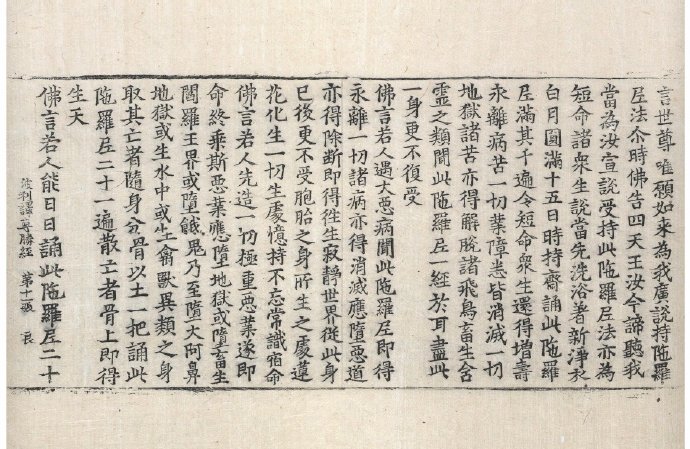 言世尊唯願如来為我廣說持陁羅
尼法尒時佛告四天王汝今諦聽我
當為汝宣說受持此陁羅尼法亦為
短命諸衆生說當先洗浴著新淨衣
白月圓滿十五日時持齋誦此陁羅
尼滿其千遍令短命衆生還得增壽
永離病苦一切業障悉皆消滅一切
地獄諸苦亦得解脫諸飛鳥畜生含
靈之類聞此陁羅尼一經於耳盡此
一身更不復受
佛言若人遇大惡病聞此陁羅尼即得
永離一切諸病亦得消滅應墮惡道
亦得除断即得徃生寂靜世界從此身
已後更不受胞胎之身所生之處蓮
花化生一切生處憶持不忘常識宿命
佛言若人先造一切極重惡業遂即
命終乘斯惡業應墮地獄或墮畜生
閻羅王界或墮餓鬼乃至墮大阿鼻
地獄或生水中或生禽獸異類之身
取其亡者隨身分骨以土一把誦此
陁羅尼二十一遍散亡者骨上即得
生天
佛言若人能日日誦此陁羅尼二十
波利譯尊勝經 第十